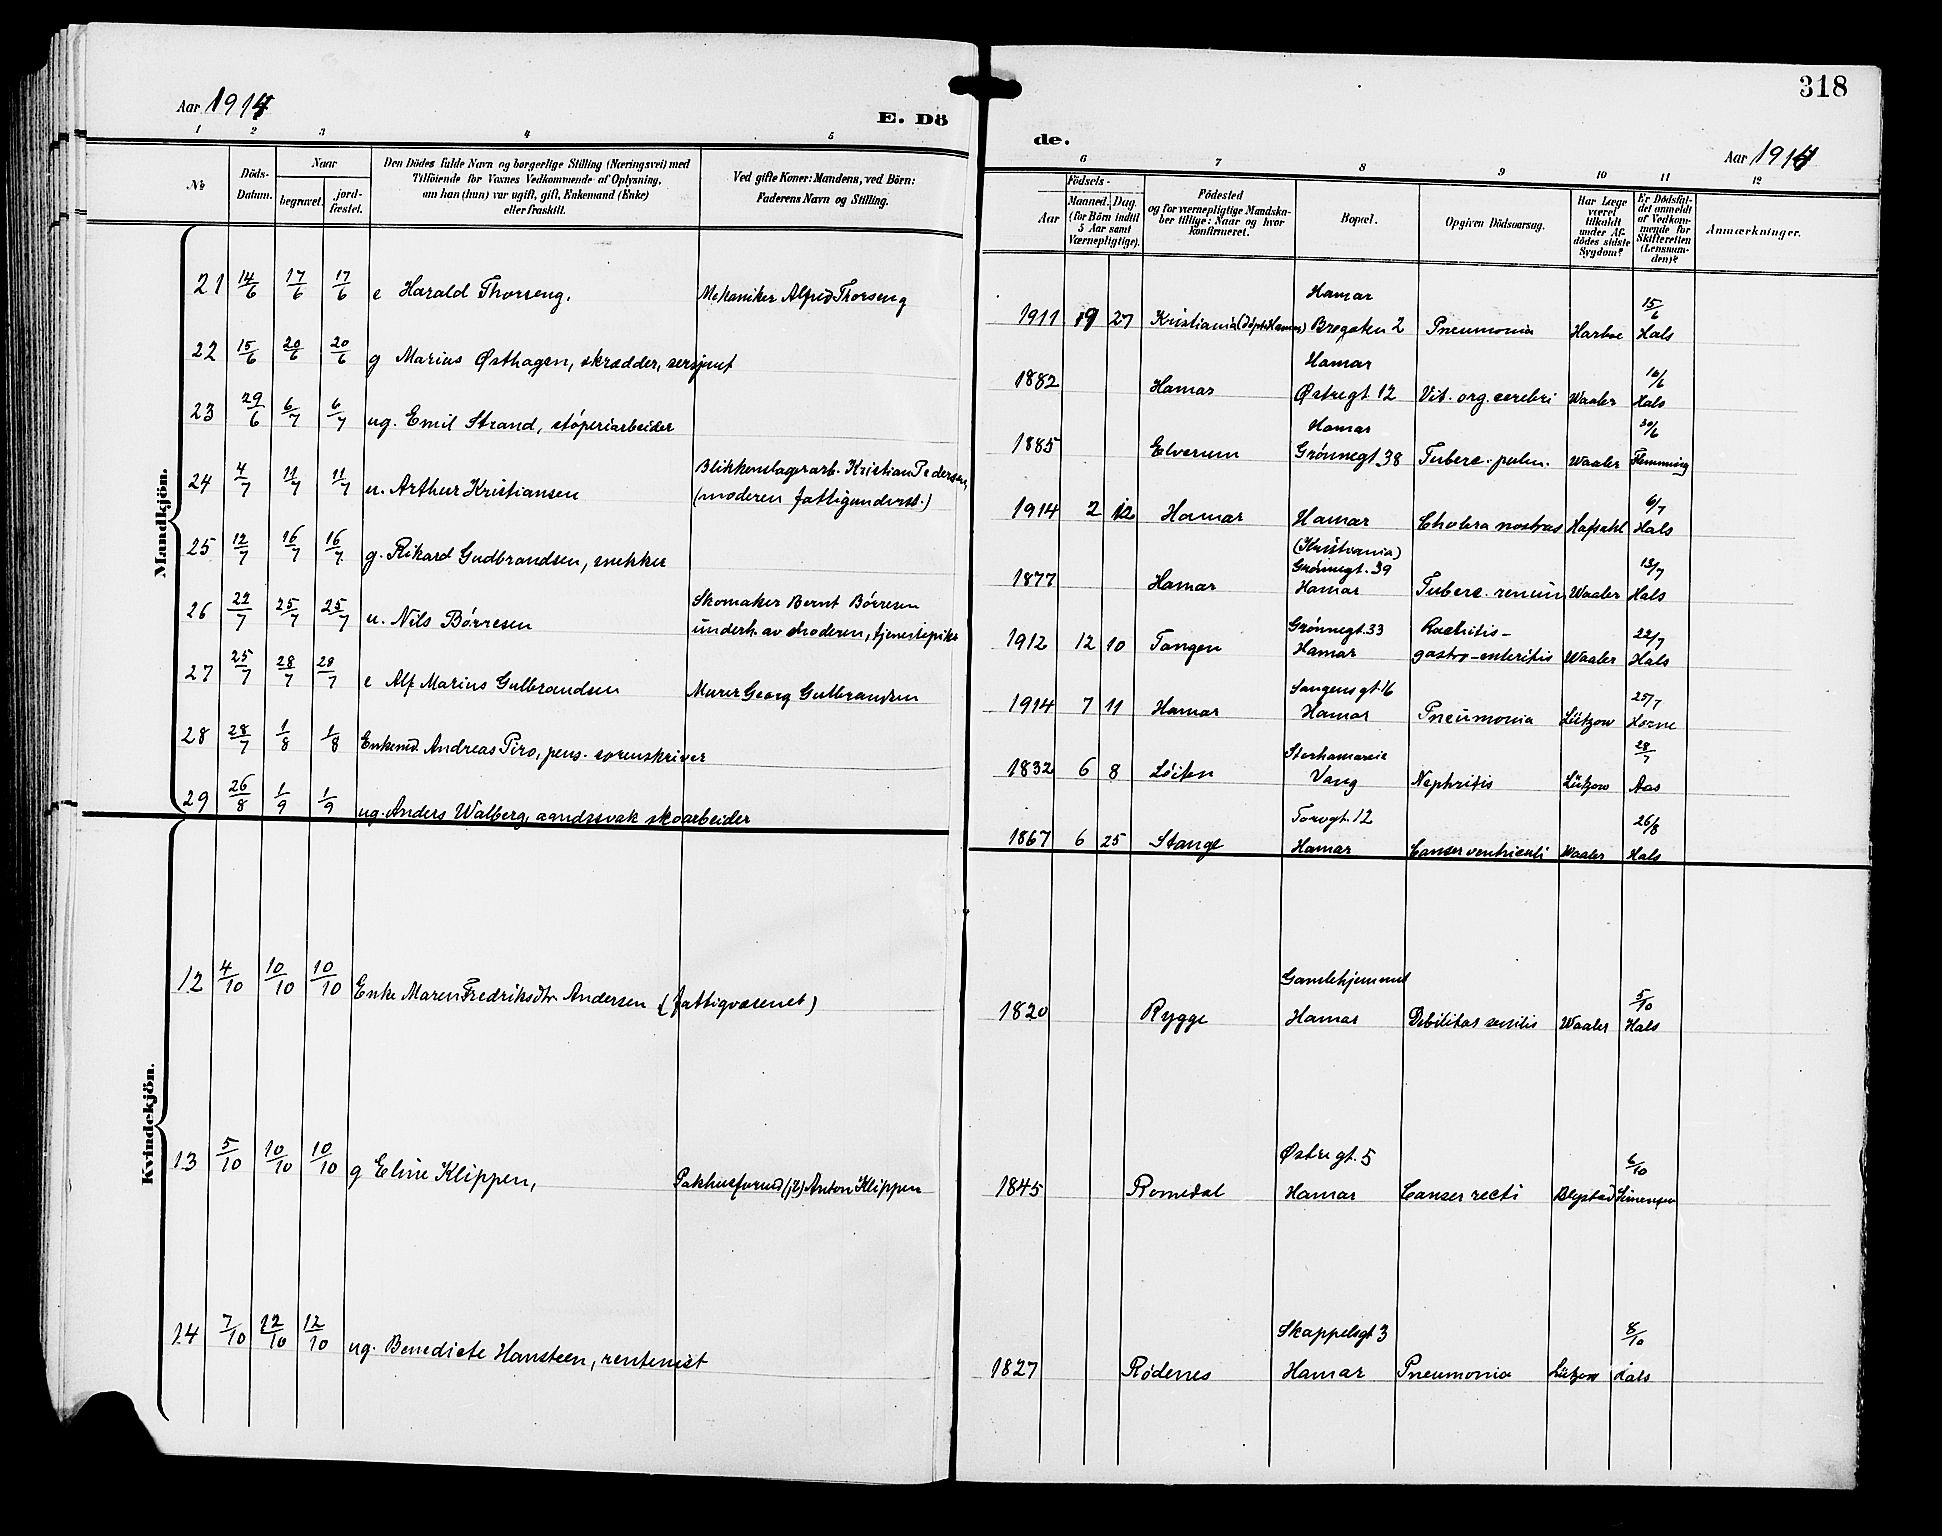 318
Aar 1914
E. Dö
de.
Aar 1914
1 2 3 4 5 6 7 8 9 10 11 12
№
Döds-
Datum.
Naar
begravet.
jord-
fæstet.
Den Dödes fulde Navn og borgerlige Stilling (Næringsvei) med
Tilföiende for Voxnes Vedkommende af Oplysning,
om han (hun) var ugift, gift, Enkemand (Enke)
eller fraskilt.
Ved gifte Koner: Mandens, ved Börn:
Faderens Navn og Stilling.
Födsels-
Aar
Maaned. Dag.
(for Börn indtil
5 Aar samt
Værnepligtige).
Födested
og for værnepligtige Mandska-
ber tillige: Naar og hvor
konfirmeret.
Bopæl.
Opgiven Dödsaarsag.
Har Læge
været
tilkaldt
under Af-
dödes sidste
Sygdom?
Er Dödsfal-
det anmeldt
af Vedkom-
mende for
Skifteretten
(Lensman-
den)?
Anmærkninger.
Mandkjön.
21 14/6 17/6 17/6 e Harald Thorseng. Mekaniker Alfred Thorseng 1911 9 27 Kristiania (døpt i Hamar) Hamar
Brogaten 2 Pneumonia Harboe 15/6
Hals
22 15/6 20/6 20/6 g Marius Østhagen, skrædder, sersjent 1882 Hamar Hamar
Østregt 12 Vit. org. cerebri Waaler 16/6
Hals
23 29/6 6/7 6/7 ug. Emil Strand, støperiarbeider 1885 Elverum Hamar
Grønnegt. 38 Tuberc. pulm. Waaler 30/6
Flemming
24 4/7 11/7 11/7 u. Arthur Kristiansen Blikkenslagerarb. Kristian Pedersen,
(moderen fattigunderst.) 1914 2 12 Hamar Hamar Cholera nostras Hafsahl 6/7
Hals
25 12/7 16/7 16/7 g. Rikard Gudbrandsen, snekker 1877 Hamar (Kristiania)
Grønnegt. 39
Hamar Tuberc. renum Waaler 13/7
Hals
26 22/7 25/7 25/7 u. Nils Børresen Skomaker Bernt Børresen
underh. av moderen, tjenestepike 1912 12 10 Tangen Grønnegt. 33
Hamar Rachitis-
gastro-enteritis Waaler 22/7
Hals
27 25/7 28/7 28/7 e Alf Marius Gulbrandsen Murer Georg Gulbrandsen 1914 7 11 Hamar Vangensgt. 16
Hamar Pneumonia Lützow 25/7
Horne
28 28/7 1/8 1/8 Enkemd. Andreas Piro, pens. sorenskriver 1832 6 8 Løiten Storhamarvie
Vang Nephritis Lützow 28/7
Aas
29 26/8 1/9 1/9 ug. Anders Walberg, aandssvak skoarbeider 1867 6 25 Stange Torvgt. 12
Hamar Canser ventriculi Waaler 26/8
Hals
Kvindekjön.
12 4/10 10/10 10/10 Enke Maren Fredriksdtr Andersen (fattigvæsenet) 1820 Rygge Gamlehjemmet
Hamar Debilitas senilis Waaler 5/10
Hals
13 5/10 10/10 10/10 g Eline Klippen, Pakhusformd (jb) Anton Klippen 1845 Romedal Østregt. 5
Hamar Canser recti Blystad 6/10
Simensen
14 7/10 12/10 12/10 ug. Benedicte Hansteen, rentenist 1827 Rødenes Skappelsgt 3
Hamar Pneumonia Lützow 8/10
Hals